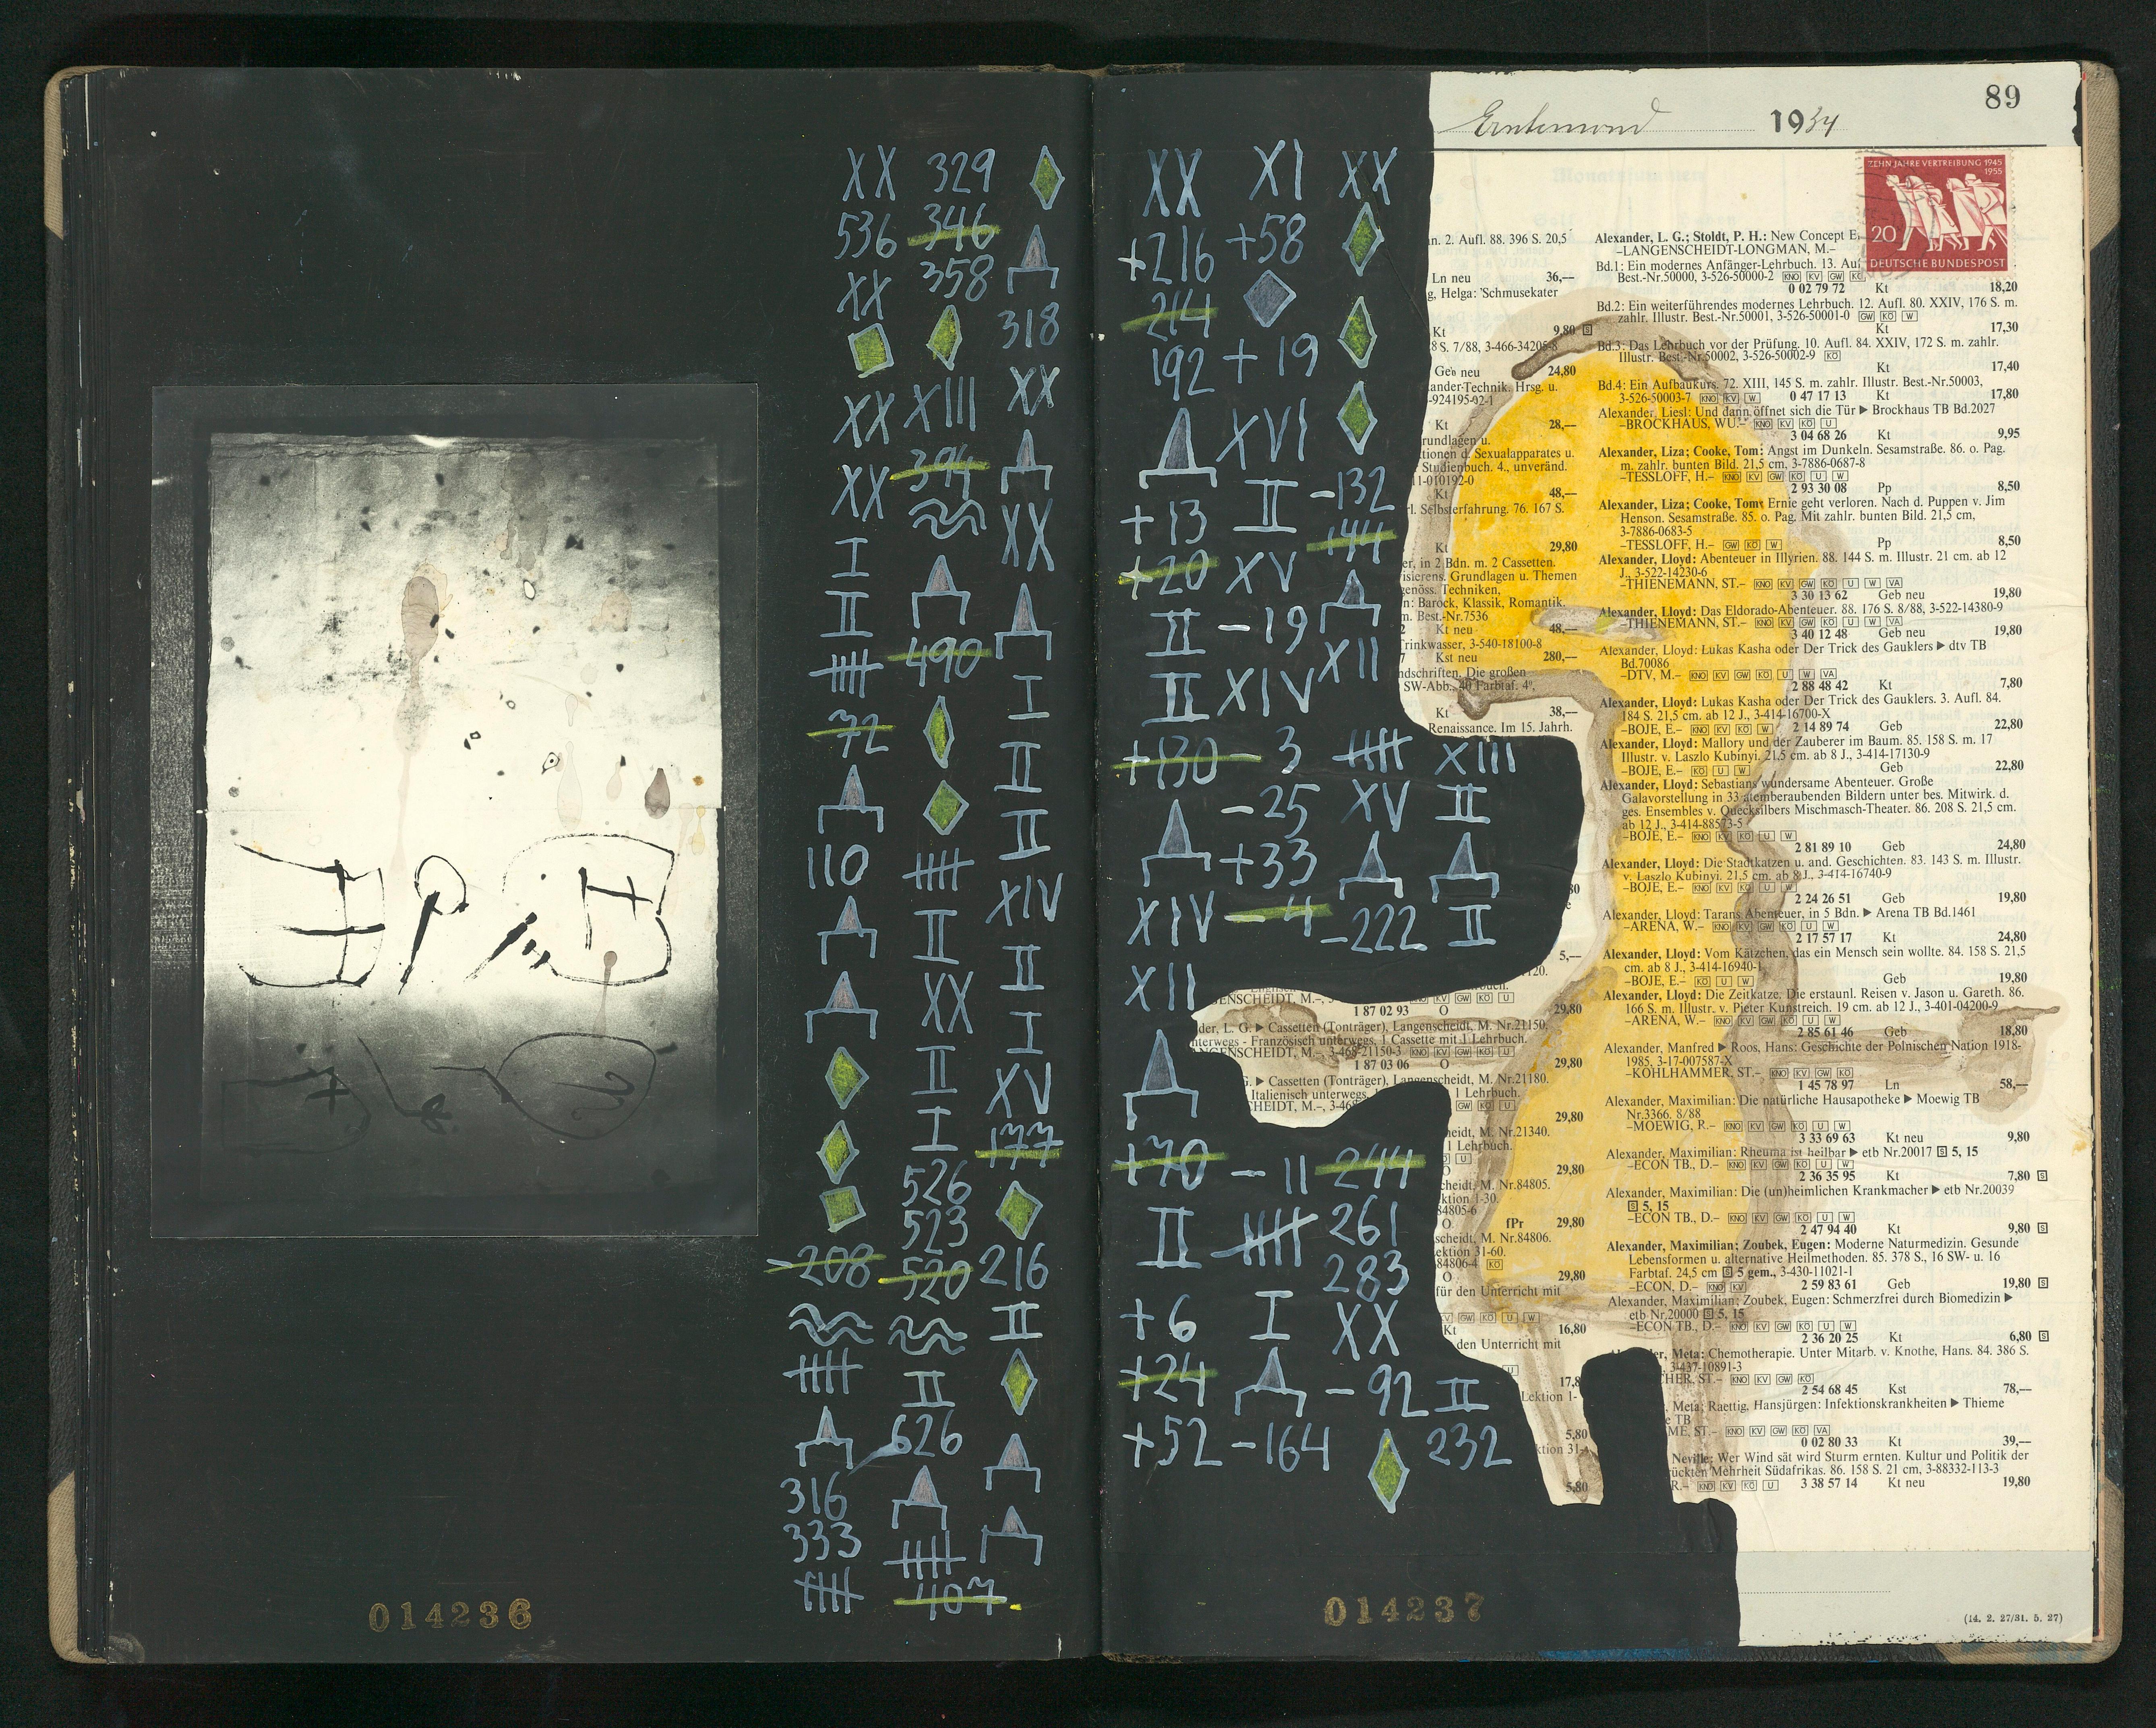 XX
536
XX
XX
XX
I
II
72
110
-208
316
333
329
346
358
XIII
394
490
II
XX
II
I
526
523
520
II
626
407
318
XX
XX
I
II
II
XIV
II
I
XV
177
216
II
014236
XX
+216
214
192
+13
+20
II
II
+130
XIV
XII
+70
II
+6
+24
+52
XI
+58
+19
XVI
II
XV
-19
XIV
-3
-25
+33
-4
-11
I
-164
XX
-132
144
XII
XV
-222
244
261
283
XX
-92
XIII
II
II
II
232
014237
Erntemond 1934
89
ZEHN JAHRE VERTREIBUNG 1945
1955
20
DEUTSCHE BUNDESPOST
n. 2. Aufl. 88. 396 S. 20,5
Ln neu 36,—
g, Helga: 'Schmusekater
Kt 9,80 S
8 S. 7/88, 3-466-34205-8
Geb neu 24,80
ander-Technik. Hrsg. u.
-924195-02-1
Kt 28,—
rundlagen u.
tionen d. Sexualapparates u.
Studienbuch. 4., unveränd.
11-010192-0
Kt 48,—
rl. Selbsterfahrung. 76. 167 S.
Kt 29,80
er, in 2 Bdn. m. 2 Cassetten.
isierens. Grundlagen u. Themen
genöss. Techniken,
n: Barock, Klassik, Romantik.
m. Best.-Nr.7536
Kt neu 48,—
rinkwasser, 3-540-18100-8
Kst neu 280,—
ndschriften. Die großen
SW-Abb., 40 Farbtaf. 4°,
Kt 38,—
Renaissance. Im 15. Jahrh.
5,—
120.
ENSCHEIDT, M.–, KV GW KÖ U
1 87 02 93 O 29,80
der, L. G. ▶ Cassetten (Tonträger), Langenscheidt, M. Nr.21150.
nterwegs - Französisch unterwegs, 1 Cassette mit 1 Lehrbuch.
NGENSCHEIDT, M.– 3-468-21150-3 KNO KV GW KÖ U
1 87 03 06 O 29,80
G. ▶ Cassetten (Tonträger), Langenscheidt, M. Nr.21180.
Italienisch unterwegs, 1 Lehrbuch.
CHEIDT, M.–, 3-468 GW KÖ U
29,80
eidt, M. Nr.21340.
1 Lehrbuch.
29,80
cheidt, M. Nr.84805.
ktion 1-30.
84805-6
O fPr 29,80
scheidt, M. Nr.84806.
ektion 31-60.
84806-4 KÖ
O 29,80
für den Unterricht mit
V GW KÖ U W
Kt 16,80
den Unterricht mit
U
17,8
Lektion 1-
5,80
ktion 31-
5,80
Alexander, L. G.; Stoldt, P. H.: New Concept E
–LANGENSCHEIDT-LONGMAN, M.–
Bd.1: Ein modernes Anfänger-Lehrbuch. 13. Auf
Best.-Nr.50000, 3-526-50000-2 KNO KV GW KÖ
0 02 79 72 Kt 18,20
Bd.2: Ein weiterführendes modernes Lehrbuch. 12. Aufl. 80. XXIV, 176 S. m.
zahlr. Illustr. Best.-Nr.50001, 3-526-50001-0 GW KÖ W
Kt 17,30
Bd.3: Das Lehrbuch vor der Prüfung. 10. Aufl. 84. XXIV, 172 S. m. zahlr.
Illustr. Best.-Nr.50002, 3-526-50002-9 KÖ
Kt 17,40
Bd.4: Ein Aufbaukurs. 72. XIII, 145 S. m. zahlr. Illustr. Best.-Nr.50003,
3-526-50003-7 KNO KV W 0 47 17 13 Kt 17,80
Alexander, Liesl: Und dann öffnet sich die Tür ▶ Brockhaus TB Bd.2027
–BROCKHAUS, WU.– KNO KV KÖ U
3 04 68 26 Kt 9,95
Alexander, Liza; Cooke, Tom: Angst im Dunkeln. Sesamstraße. 86. o. Pag.
m. zahlr. bunten Bild. 21,5 cm, 3-7886-0687-8
–TESSLOFF, H.– KNO KV GW KÖ U W
2 93 30 08 Pp 8,50
Alexander, Liza; Cooke, Tom: Ernie geht verloren. Nach d. Puppen v. Jim
Henson. Sesamstraße. 85. o. Pag. Mit zahlr. bunten Bild. 21,5 cm,
3-7886-0683-5
–TESSLOFF, H.– GW KÖ W Pp 8,50
Alexander, Lloyd: Abenteuer in Illyrien. 88. 144 S. m. Illustr. 21 cm. ab 12
J., 3-522-14230-6
–THIENEMANN, ST.– KNO KV GW KÖ U W VA
3 30 13 62 Geb neu 19,80
Alexander, Lloyd: Das Eldorado-Abenteuer. 88. 176 S. 8/88, 3-522-14380-9
–THIENEMANN, ST.– KNO KV GW KÖ U W VA
3 40 12 48 Geb neu 19,80
Alexander, Lloyd: Lukas Kasha oder Der Trick des Gauklers ▶ dtv TB
Bd.70086
–DTV, M.– KNO KV GW KÖ U W VA
2 88 48 42 Kt 7,80
Alexander, Lloyd: Lukas Kasha oder Der Trick des Gauklers. 3. Aufl. 84.
184 S. 21,5 cm. ab 12 J., 3-414-16700-X
–BOJE, E.– KNO KV KÖ W 2 14 89 74 Geb 22,80
Alexander, Lloyd: Mallory und der Zauberer im Baum. 85. 158 S. m. 17
Illustr. v. Laszlo Kubinyi. 21,5 cm. ab 8 J., 3-414-17130-9
–BOJE, E.– KÖ U W Geb 22,80
Alexander, Lloyd: Sebastians wundersame Abenteuer. Große
Galavorstellung in 33 atemberaubenden Bildern unter bes. Mitwirk. d.
ges. Ensembles v. Quecksilbers Mischmasch-Theater. 86. 208 S. 21,5 cm.
ab 12 J., 3-414-88573-5
–BOJE, E.– KNO KV KÖ U W
2 81 89 10 Geb 24,80
Alexander, Lloyd: Die Stadtkatzen u. and. Geschichten. 83. 143 S. m. Illustr.
v. Laszlo Kubinyi. 21,5 cm. ab 8 J., 3-414-16740-9
–BOJE, E.– KNO KV KÖ U W
2 24 26 51 Geb 19,80
Alexander, Lloyd: Tarans Abenteuer, in 5 Bdn. ▶ Arena TB Bd.1461
–ARENA, W.– KNO KV GW KÖ U W
2 17 57 17 Kt 24,80
Alexander, Lloyd: Vom Kätzchen, das ein Mensch sein wollte. 84. 158 S. 21,5
cm. ab 8 J., 3-414-16940-1
–BOJE, E.– KÖ U W Geb 19,80
Alexander, Lloyd: Die Zeitkatze. Die erstaunl. Reisen v. Jason u. Gareth. 86.
166 S. m. Illustr. v. Pieter Kunstreich. 19 cm. ab 12 J., 3-401-04200-9
–ARENA, W.– KNO KV GW KÖ U W
2 85 61 46 Geb 18,80
Alexander, Manfred ▶ Roos, Hans: Geschichte der Polnischen Nation 1918-
1985, 3-17-007587-X
–KOHLHAMMER, ST.– KNO KV GW KÖ
1 45 78 97 Ln 58,—
Alexander, Maximilian: Die natürliche Hausapotheke ▶ Moewig TB
Nr.3366. 8/88
–MOEWIG, R.– KNO KV GW KÖ U W
3 33 69 63 Kt neu 9,80
Alexander, Maximilian: Rheuma ist heilbar ▶ etb Nr.20017 S 5, 15
–ECON TB., D.– KNO KV GW KÖ U W
2 36 35 95 Kt 7,80 S
Alexander, Maximilian: Die (un)heimlichen Krankmacher ▶ etb Nr.20039
S 5, 15
–ECON TB., D.– KNO KV GW KÖ U W
2 47 94 40 Kt 9,80 S
Alexander, Maximilian; Zoubek, Eugen: Moderne Naturmedizin. Gesunde
Lebensformen u. alternative Heilmethoden. 85. 378 S., 16 SW- u. 16
Farbtaf. 24,5 cm S 5 gem., 3-430-11021-1
–ECON, D.– KNO KV 2 59 83 61 Geb 19,80 S
Alexander, Maximilian; Zoubek, Eugen: Schmerzfrei durch Biomedizin ▶
etb Nr.20000 S 5, 15
–ECON TB., D.– KNO KV GW KÖ U W
2 36 20 25 Kt 6,80 S
er, Meta: Chemotherapie. Unter Mitarb. v. Knothe, Hans. 84. 386 S.
3-437-10891-3
CHER, ST.– KNO KV GW KÖ
2 54 68 45 Kst 78,—
, Meta; Raettig, Hansjürgen: Infektionskrankheiten ▶ Thieme
e TB
ME, ST.– KNO KV GW KÖ VA
0 02 80 33 Kt 39,—
Neville: Wer Wind sät wird Sturm ernten. Kultur und Politik der
rückten Mehrheit Südafrikas. 86. 158 S. 21 cm, 3-88332-113-3
R.– KNO KV KÖ U 3 38 57 14 Kt neu 19,80
(14. 2. 27/31. 5. 27)